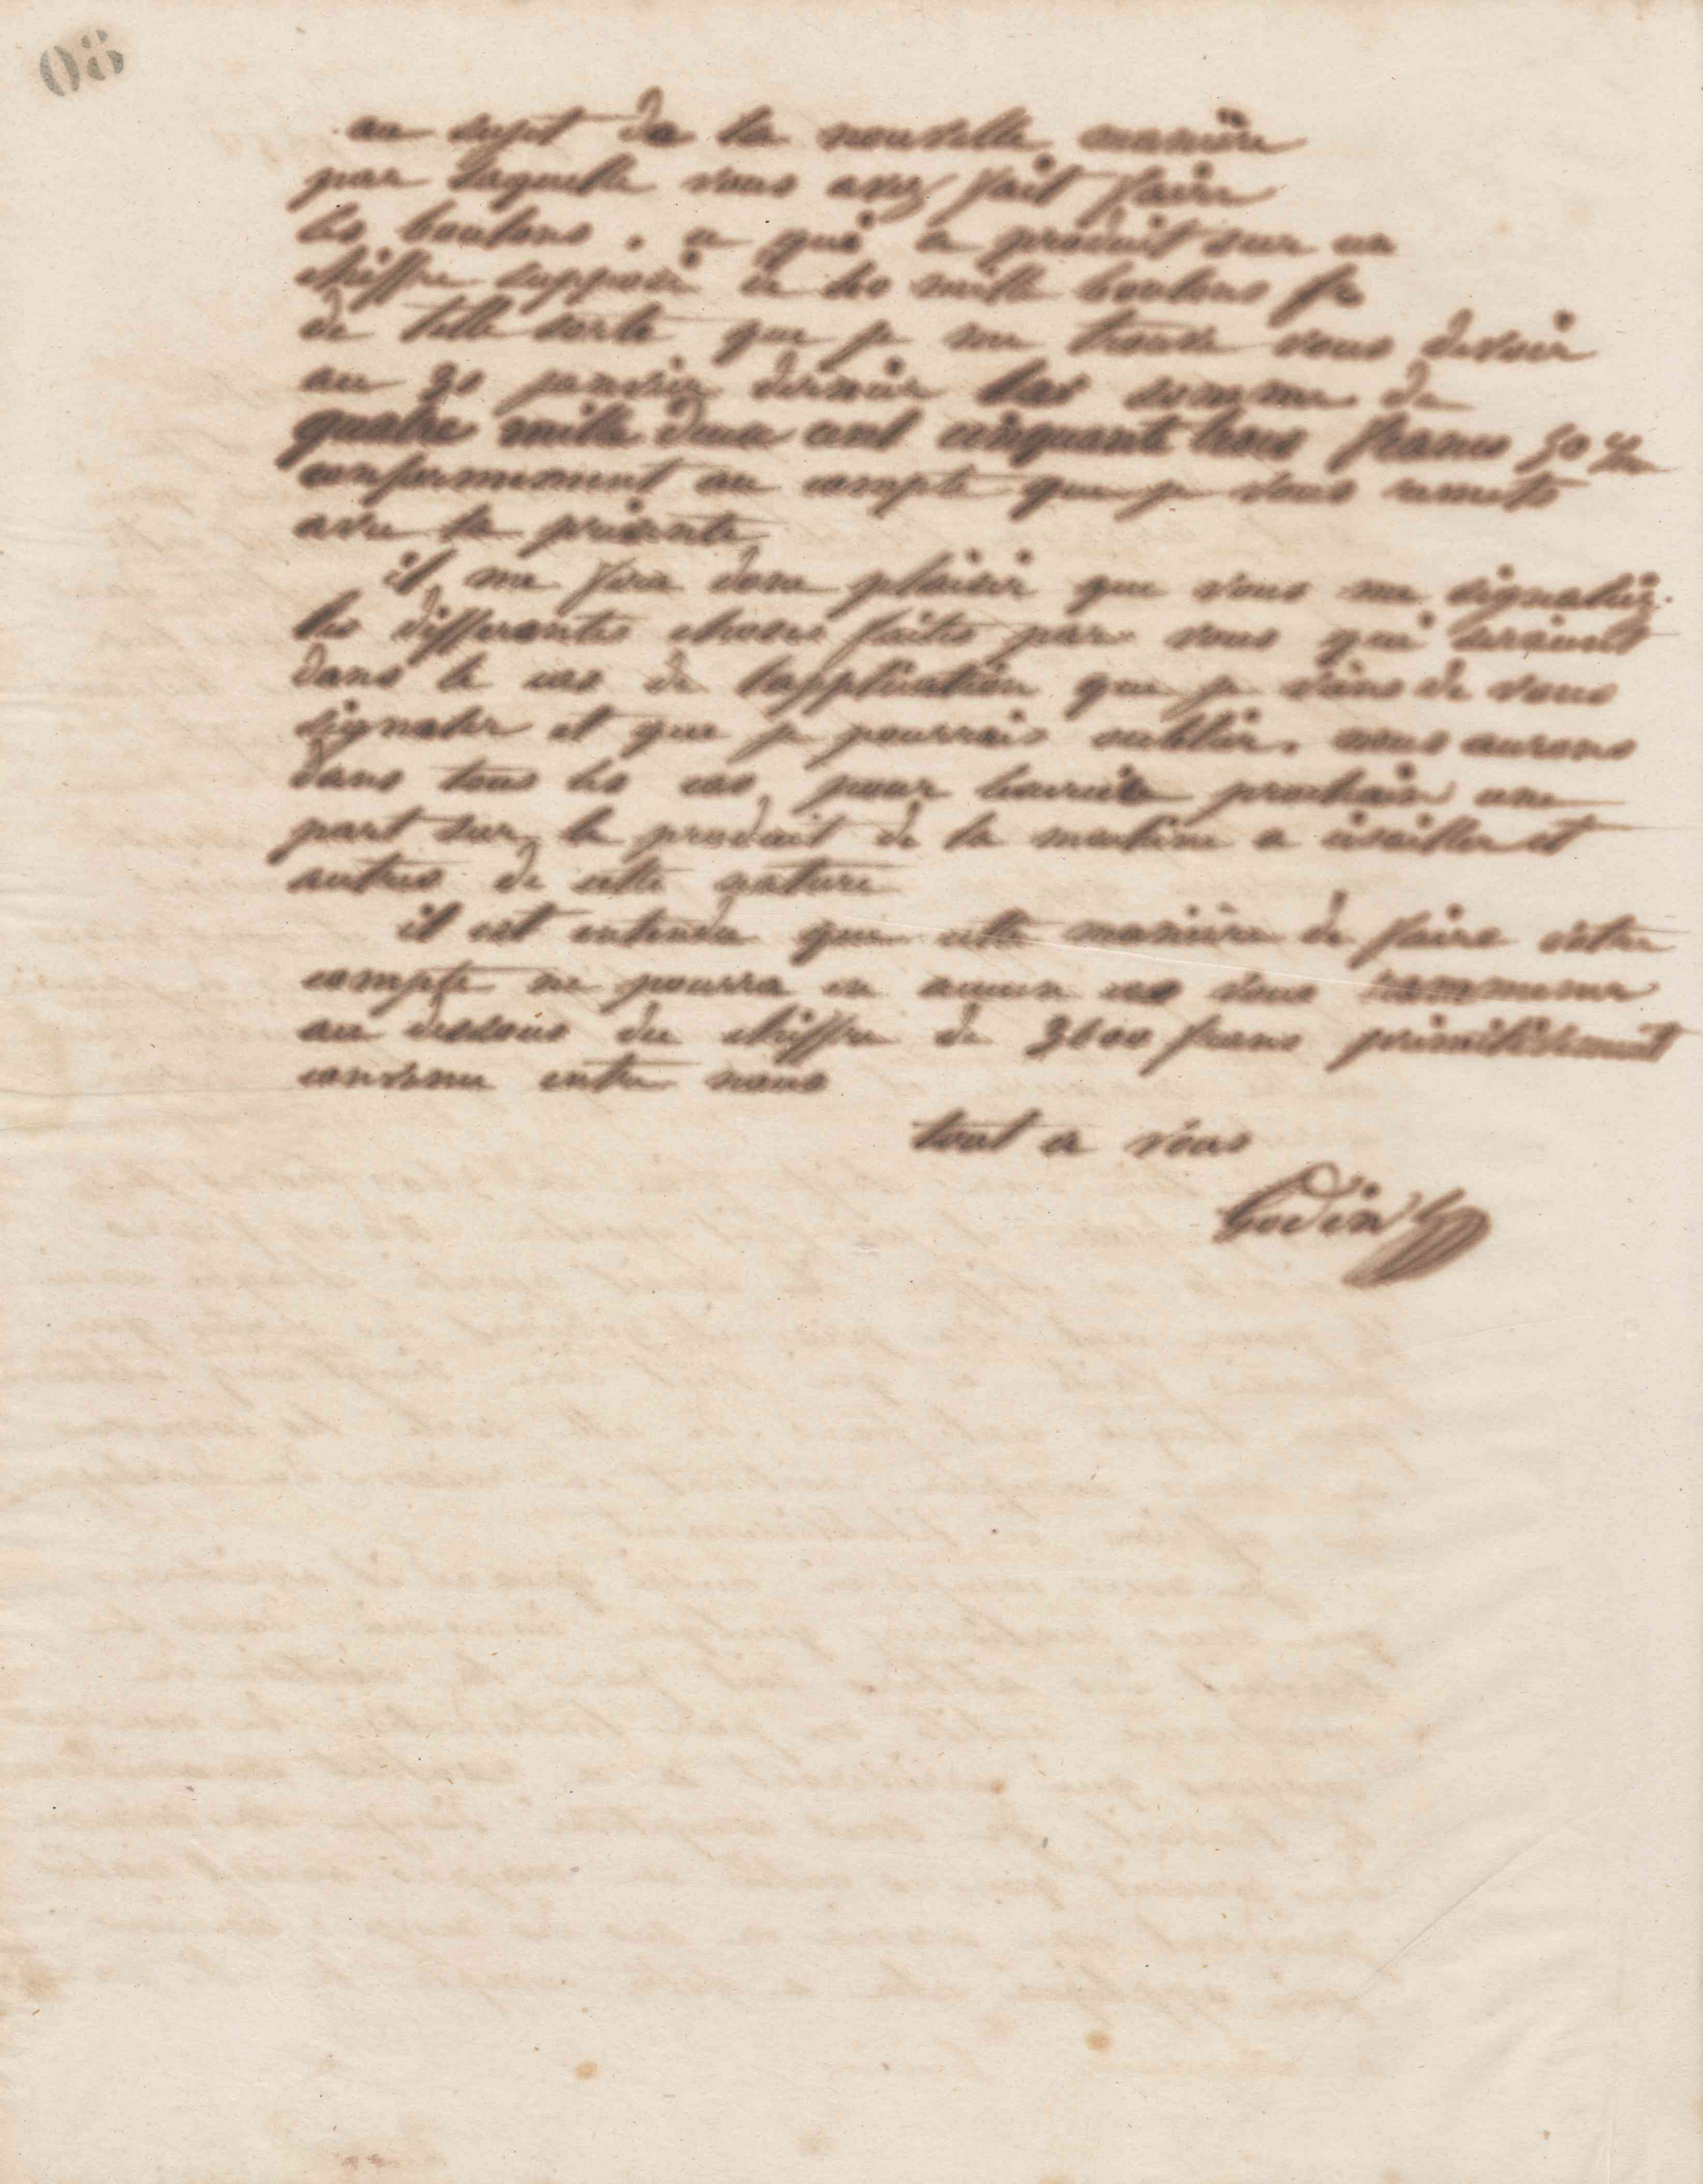 80
au sujet de la nouvelle manière
par laquelle vous avez fait faire
les boulons. ce qui a produit sur un
chiffre supposé de mille boulons fr
de telle sorte que je me trouve vous devoir
au 30 janvier dernier la somme de
quatre mille deux cent cinquante trois francs 50
conformement au compte que je vous remets
avec la présente
il me fera donc plaisir que vous me signaliez
les differentes choses faites par vous qui seraient
dans le cas de lapplication que je viens de vous
signaler et que je pourrais oublier. nous aurons
dans tous les cas pour prochain une
part sur le produit de la machine a cisailler et
autres de cette nature
il est entendu que cette manière de faire votre
compte ne pourra en aucun cas vous
au dessous du chiffre de 3600 francs primitivement
convenu entre nous
tout a vous
Godin